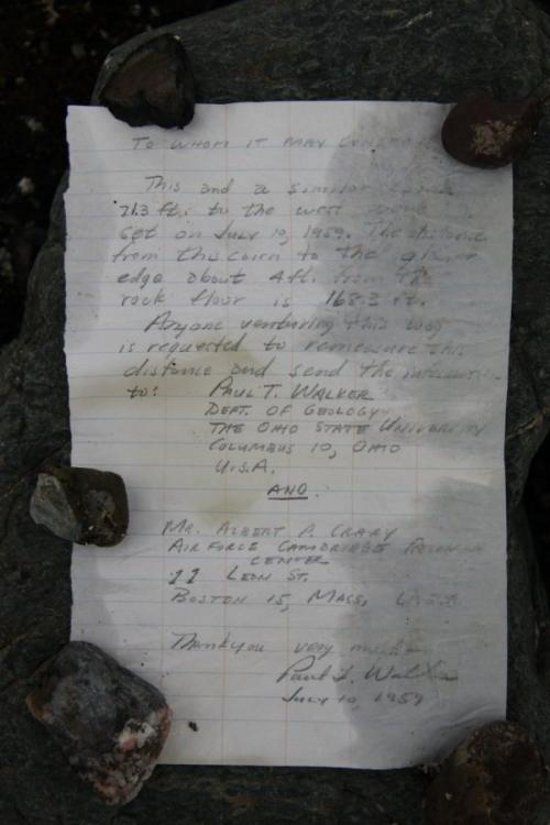 TO WHOM IT MAY CONCERN
This and a similar cairn
21.3 ft. to the west were
set on July 10, 1959. The distance
from this cairn to the glacier
edge about 4 ft. from the
rock floor is 168.3 ft.
Anyone venturing this way
is requested to remeasure this
distance and send the information
to: PAUL T. WALKER
DEPT. OF GEOLOGY
THE OHIO STATE UNIVERSITY
COLUMBUS 10, OHIO
U.S.A.
AND:
MR. ALBERT P. CRARY
AIR FORCE CAMBRIDGE RESEARCH
CENTER
11 LEON ST.
BOSTON 15, MASS, U.S.A.
Thank you very much
Paul T. Walker
JULY 10, 1959